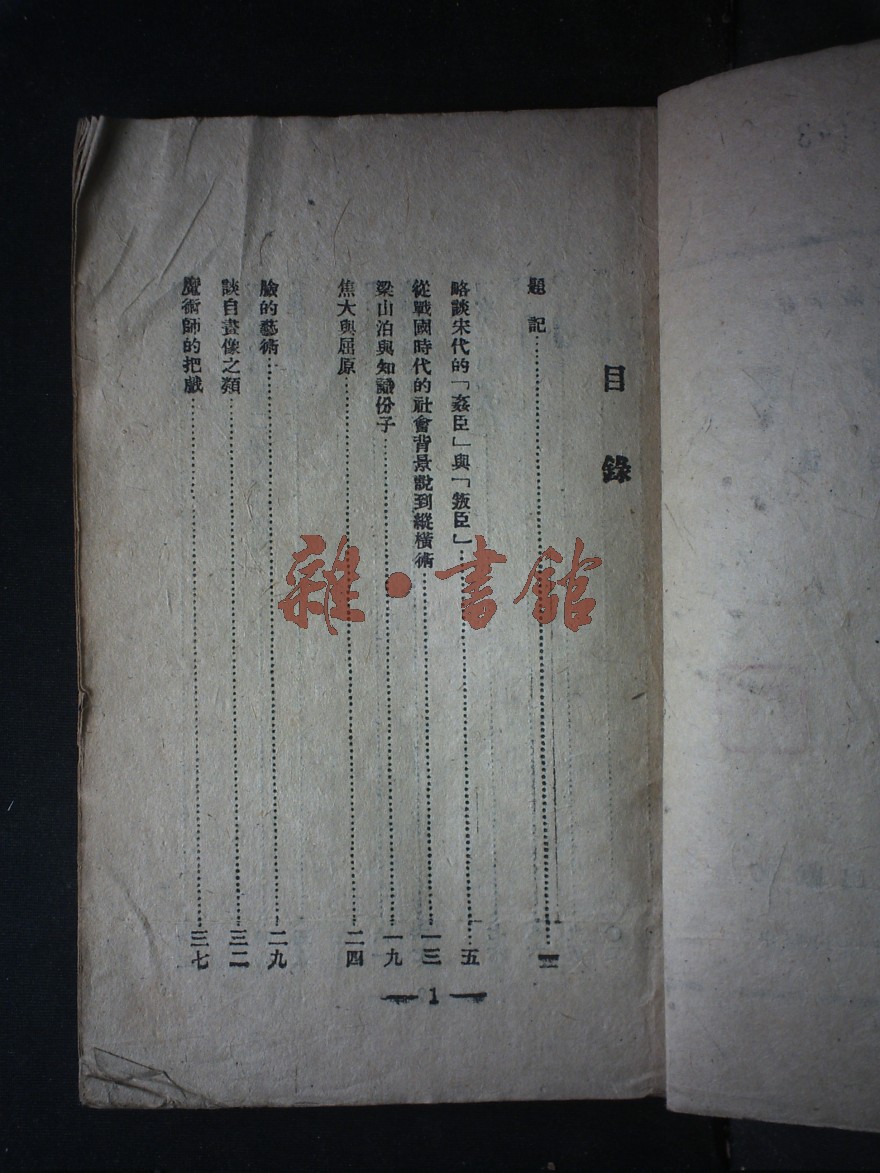 目錄
題記……一
略談宋代的「姦臣」與「叛臣」……五
從戰國時代的社會背景說到縱橫術……一三
梁山泊與知識份子……一九
焦大與屈原……二四
臉的藝術……二九
談自畫像之類……三二
魔術師的把戲……三七
1
雜·書館